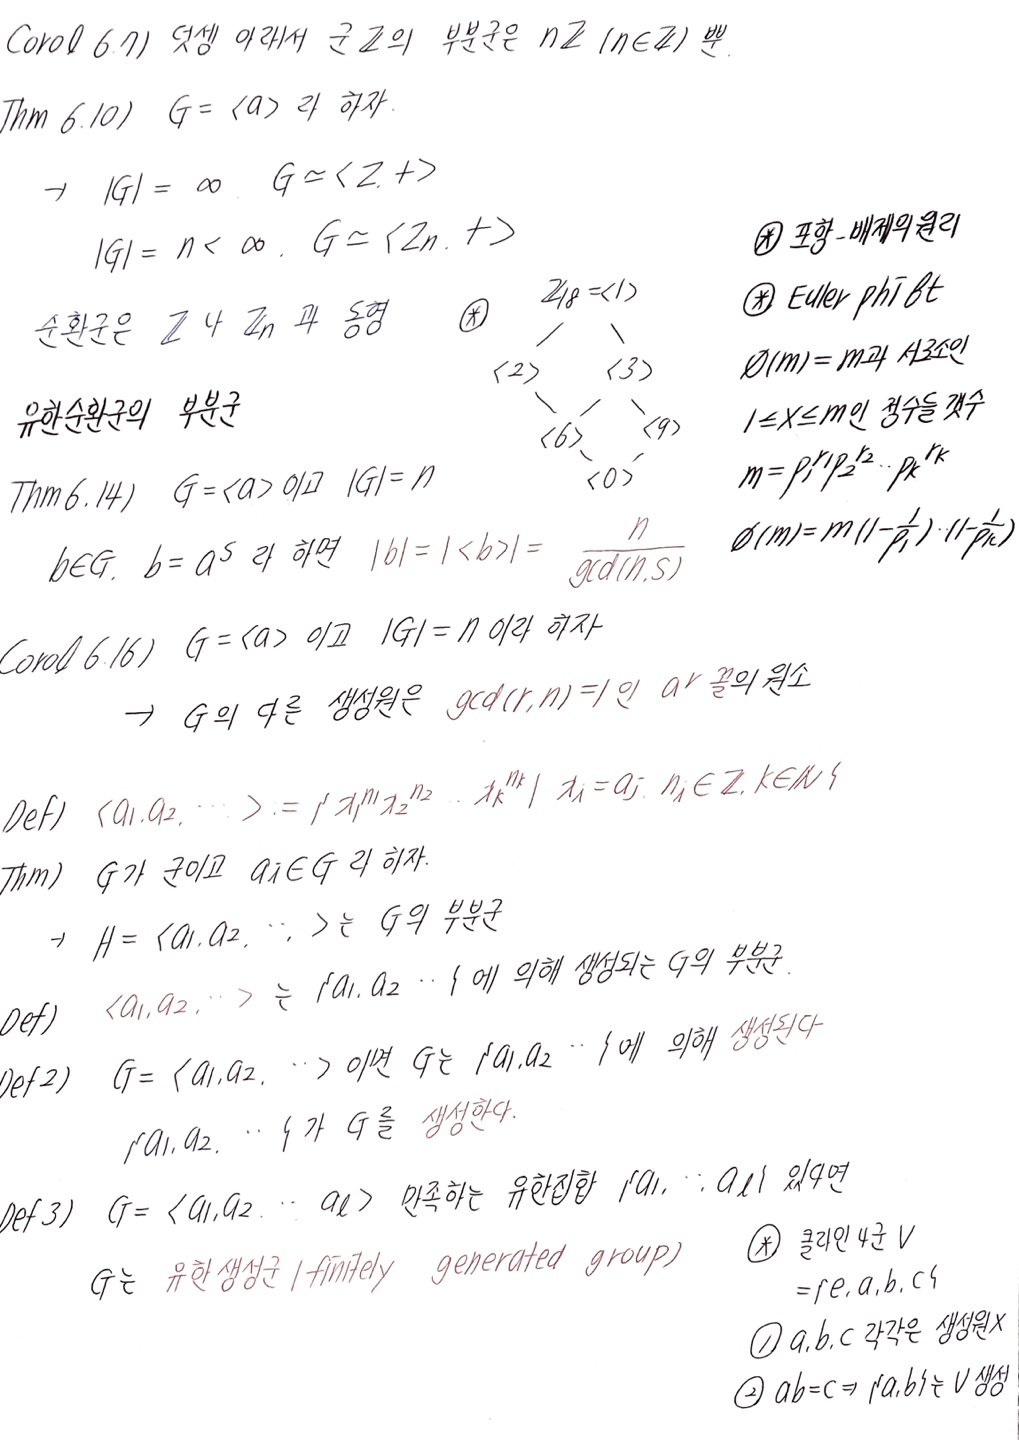 Corol 6.7) 덧셈 아래서 군 ℤ의 부분군은 nℤ (n∈ℤ) 뿐.
Thm 6.10) G = <a> 라 하자.
→ |G| = ∞. G ≃ <ℤ, +>
|G| = n < ∞. G ≃ <ℤn, +>
순환군은 ℤ 나 ℤn 과 동형
유한순환군의 부분군
⊛ ℤ18 = <1>
<2> <3>
<6> <9>
<0>
⊛ 포함-배제의 원리
⊛ Euler phi ft
Ø(m) = m과 서로소인
1 ≤ x ≤ m인 정수들 갯수
m = p₁^r₁ p₂^r₂ ‥ pₖ^rₖ
Ø(m) = m (1 - 1/p₁) ‥ (1 - 1/pₖ)
Thm 6.14) G = <a> 이고 |G| = n
b∈G. b = a^s 라 하면 |b| = |<b>| = n / gcd(n, s)
Corol 6.16) G = <a> 이고 |G| = n 이라 하자
→ G의 다른 생성원은 gcd(r, n) = 1 인 ar 꼴의 원소
Def) <a₁, a₂, ⋯> := { x₁^n₁ x₂^n₂ ‥ xₖ^nₖ | xᵢ = aⱼ. nᵢ ∈ ℤ, k∈ℕ }
Thm) G가 군이고 aᵢ∈G 라 하자.
→ H = <a₁, a₂, ‥, >는 G의 부분군
Def) <a₁, a₂, ‥> 는 {a₁, a₂ ‥} 에 의해 생성되는 G의 부분군.
Def 2) G = <a₁, a₂, ‥> 이면 G는 {a₁, a₂ ‥}에 의해 생성된다
{a₁, a₂, ‥} 가 G를 생성한다.
Def 3) G = <a₁, a₂ ‥ aℓ> 만족하는 유한집합 {a₁, ‥, aℓ} 있다면
G는 유한생성군 (finitely generated group)
⊛ 클라인 4군 V
= {e, a, b, c}
① a, b, c 각각은 생성원X
② ab=c ⇒ {a, b}는 V 생성